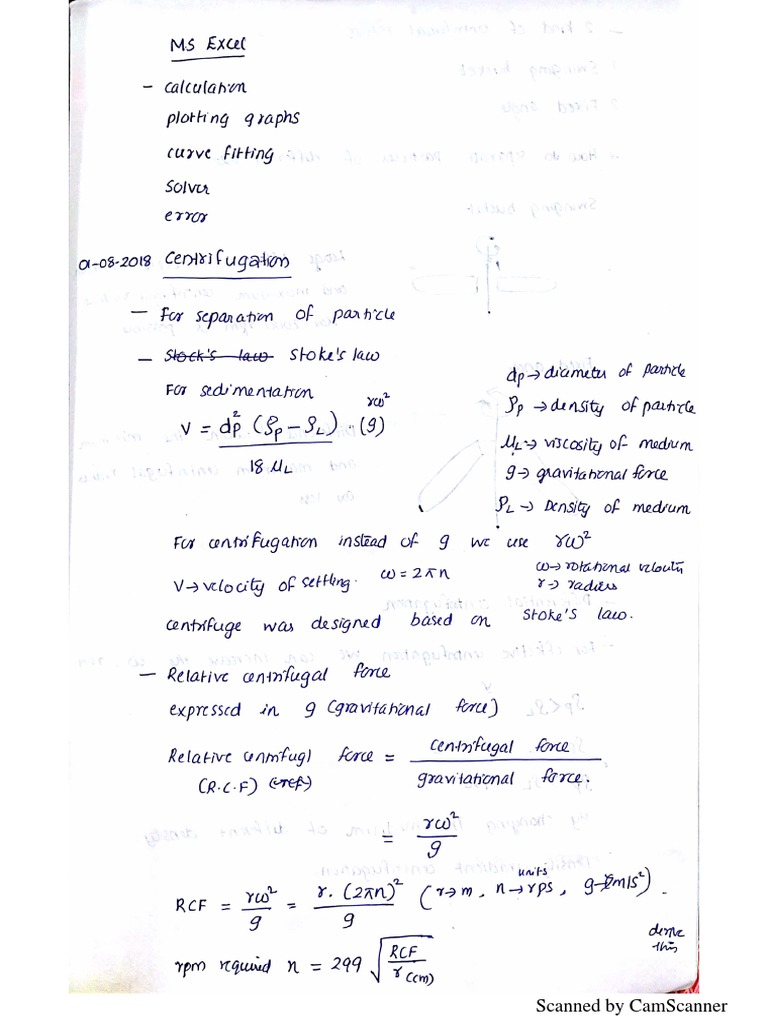 MS Excel
- calculation
plotting graphs
curve fitting
solver
error
01-08-2018 Centrifugation
- For separation of particle
- Stock's law Stoke's law
For sedimentation
rω²
V = dp² (ρp - ρL) . (g)
18 μL
dp → diameter of particle
ρp → density of particle
μL → viscosity of medium
g → gravitational force
ρL → Density of medium
For centrifugation instead of g we use rω²
V → velocity of settling. ω = 2πn
ω → rotational velocity
r → radius
centrifuge was designed based on Stoke's law.
- Relative centrifugal force
expressed in g (gravitational force)
Relative centrifugl force = centrifugal force
(R.C.F) gravitational force.
= rω²
g
units
RCF = rω² = r. (2πn)² (r → m, n → rps, g → m/s²).
g g
derive
this
rpm required n = 299 √ RCF
r (cm)
Scanned by CamScanner